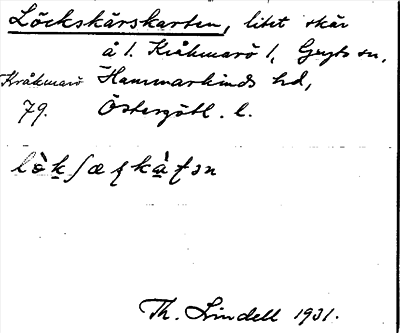 Löckskärskarten, litet skär
å l. Kråkmarö l, Gryts sn,
Kråkmarö Hammarkinds hd,
79. Östergötl. l.
Th. Lindell 1931.